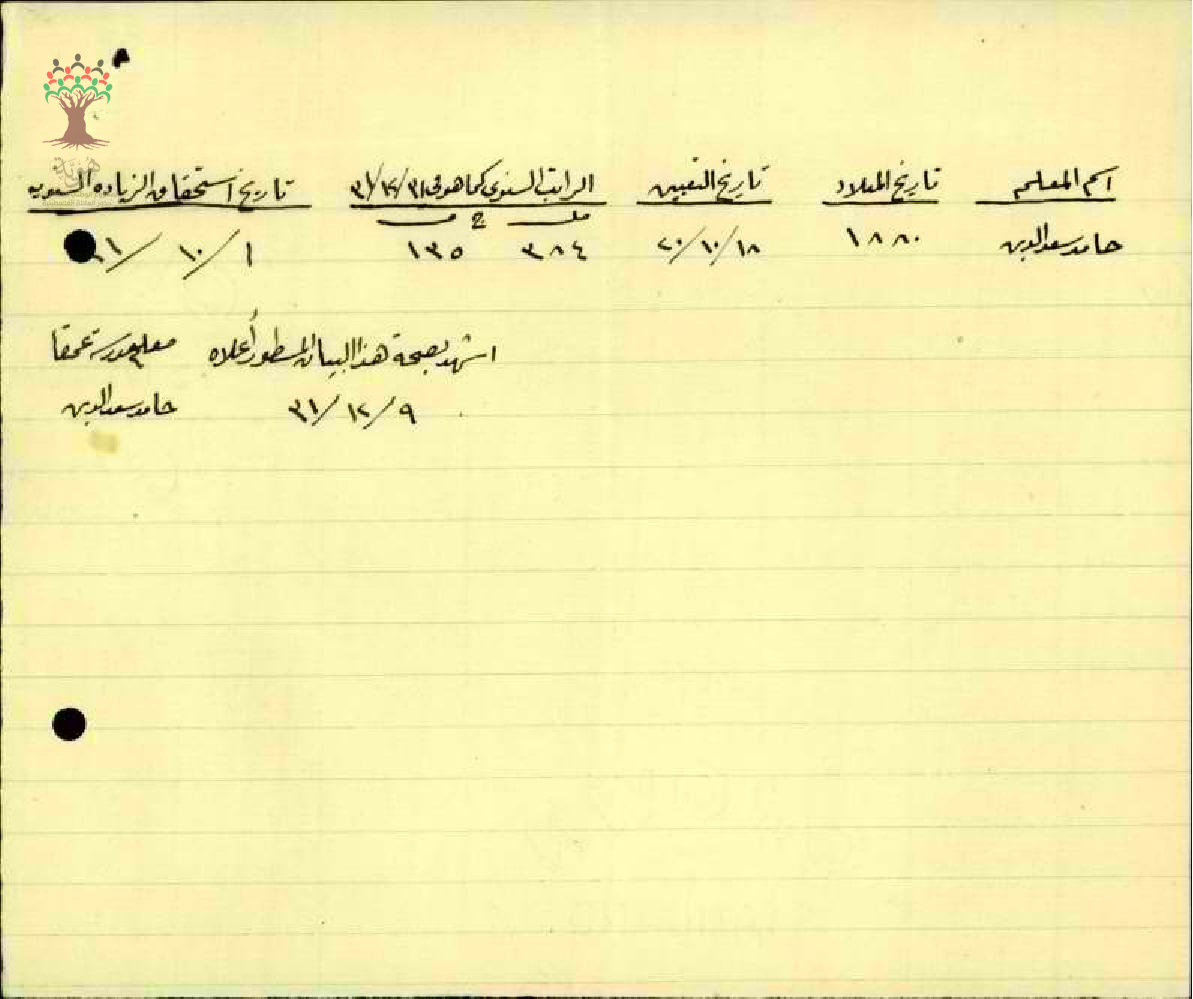 اسم المعلم تاريخ الميلاد تاريخ التعيين الراتب السنوي كما هو في ٣١/١٢/٣١ تاريخ استحقاق الزياده السنويه
مل ج ف
حامد سعد الدين ١٨٨٠ ١٨/١٠/٢٠ ٣٨٤ ١٣٥ ١/١٠/
اشهد بصحة هذا البيان المسطور أعلاه معلم مدرسة عمقا
٩/١٢/٣١ حامد سعد الدين
هُويَّة